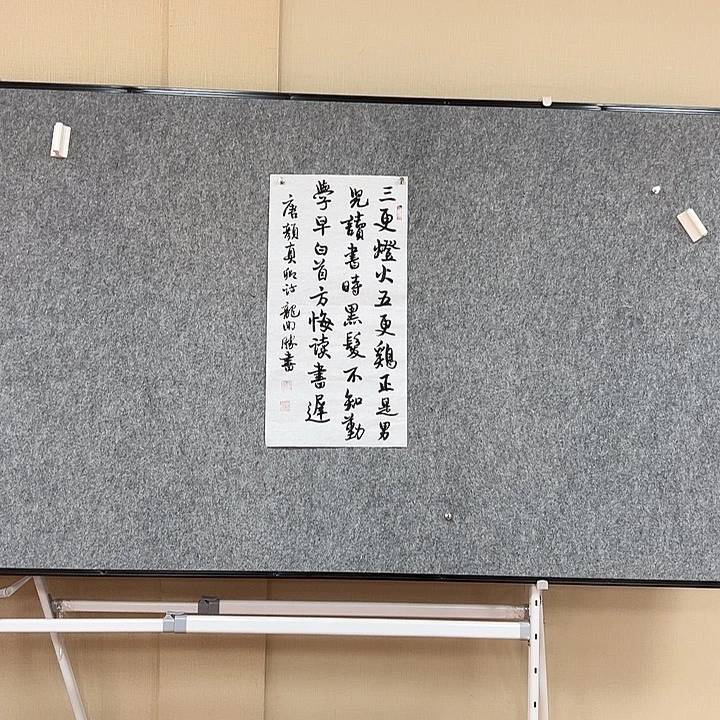 三更燈火五更鷄正是男
児讀書時黒髮不知勤
學早白首方悔读書遲
唐顏真卿诗 龍田勝書